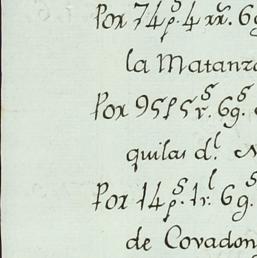 Por 74p.s 4rr.s 6g
la Matanz
Por 95p5r.s 6g.s
quilas d.l
Por 14p.s 1r.l 6g.s
de Covadon